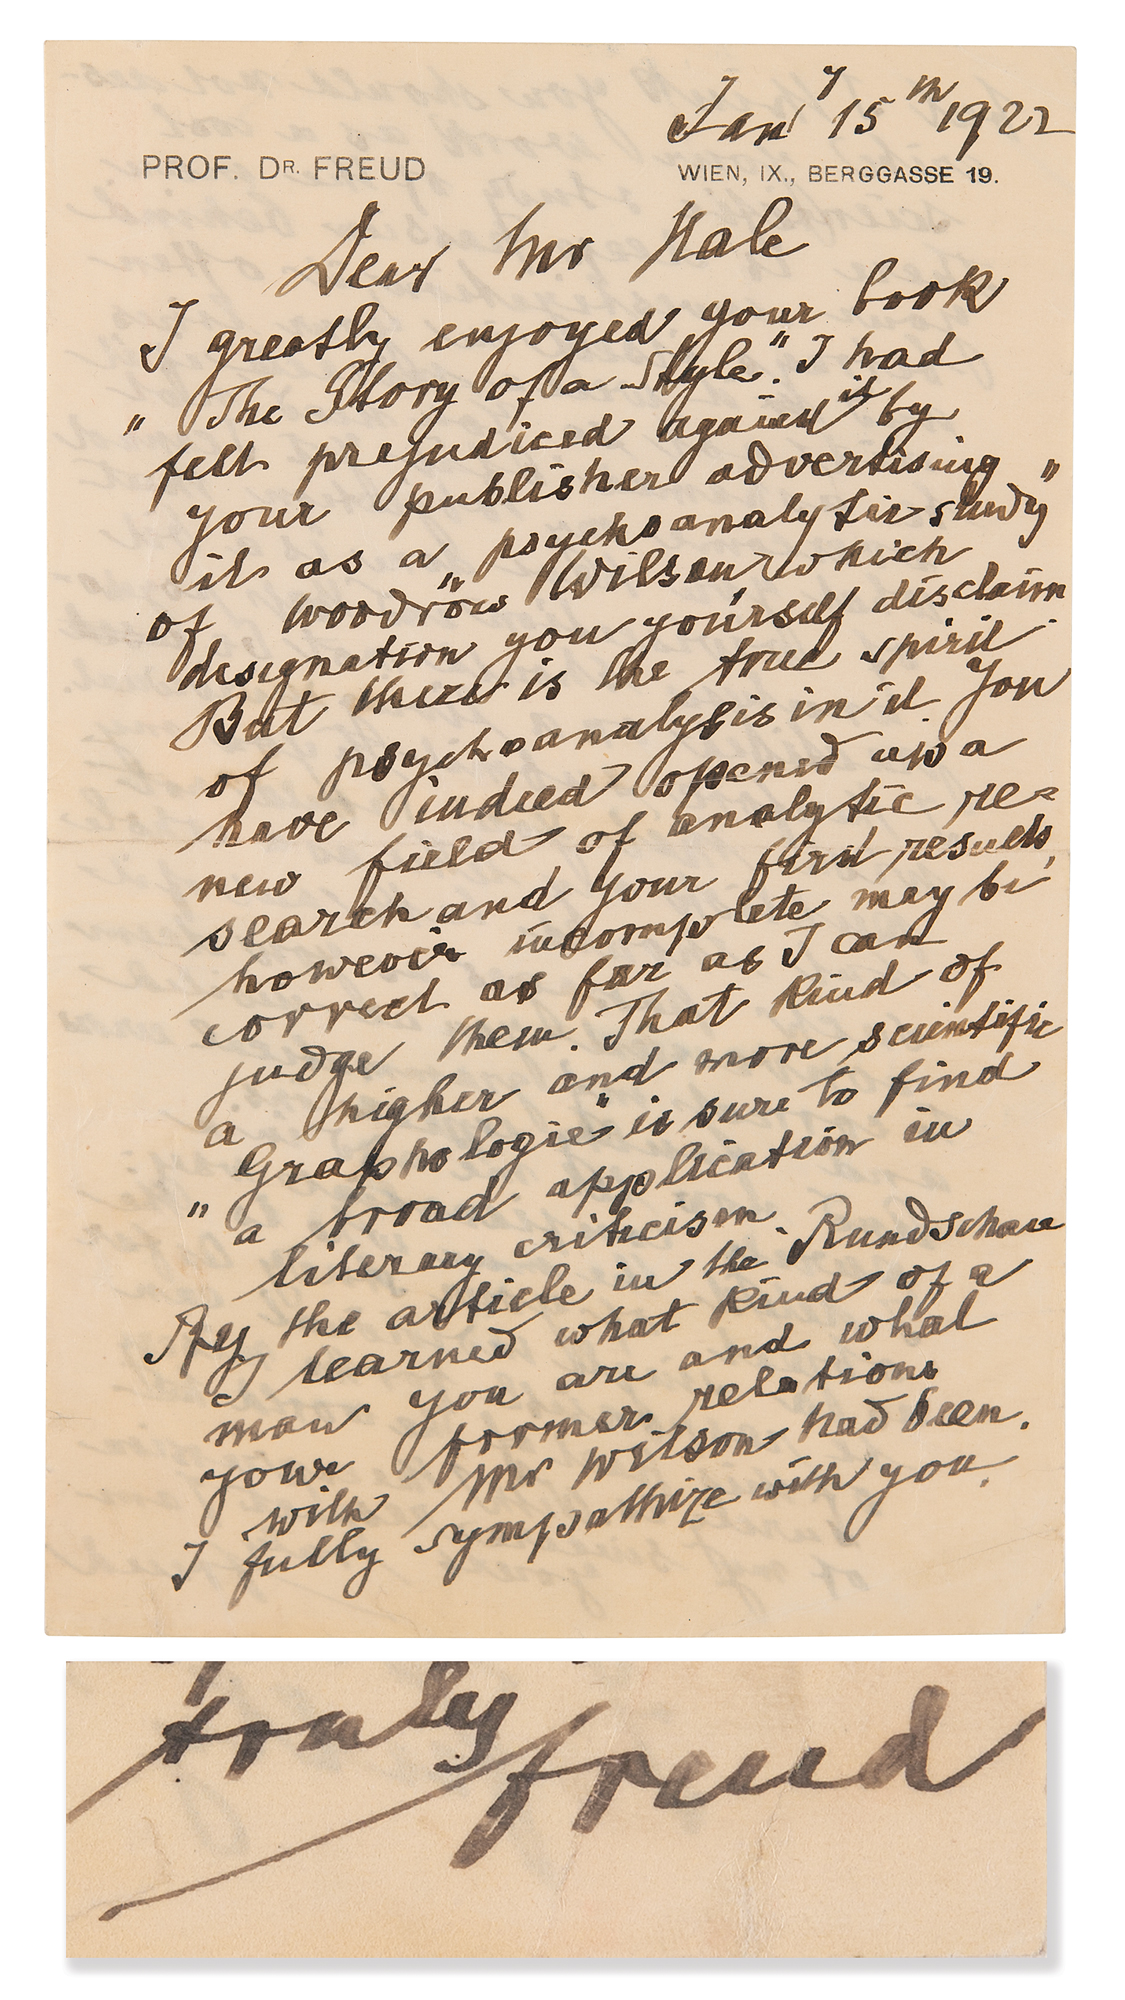 Jany 15th 1922
PROF. DR. FREUD
WIEN, IX., BERGGASSE 19.
Dear Mr Hale
I greatly enjoyed your book
"The Story of a Style". I had
felt prejudiced against it by
your publisher advertising
it as a "psychoanalytic study"
of Woodrow Wilson" which
designation you yourself disclaim.
But there is the true spirit
of psychoanalysis in it. You
have indeed opened up a
new field of analytic re=
search and your first results,
however incomplete may be
correct as far as I can
judge them. That kind of
a higher and more scientific
"Graphologie" is sure to find
a broad application in
literary criticism.
By the article in the Rundschau
I learned what kind of a
man you are and what
your former relations
with Mr Wilson had been.
I fully sympathize with you.
truly
Freud